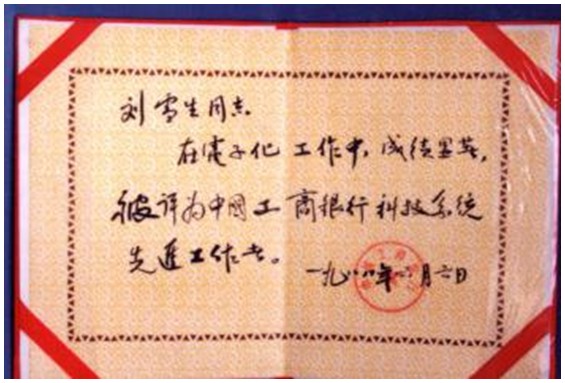 刘雪生同志
在電子化工作中,成绩显著,
被评为中國工商银行科技系统
先進工作者。
一九八八年六月六日